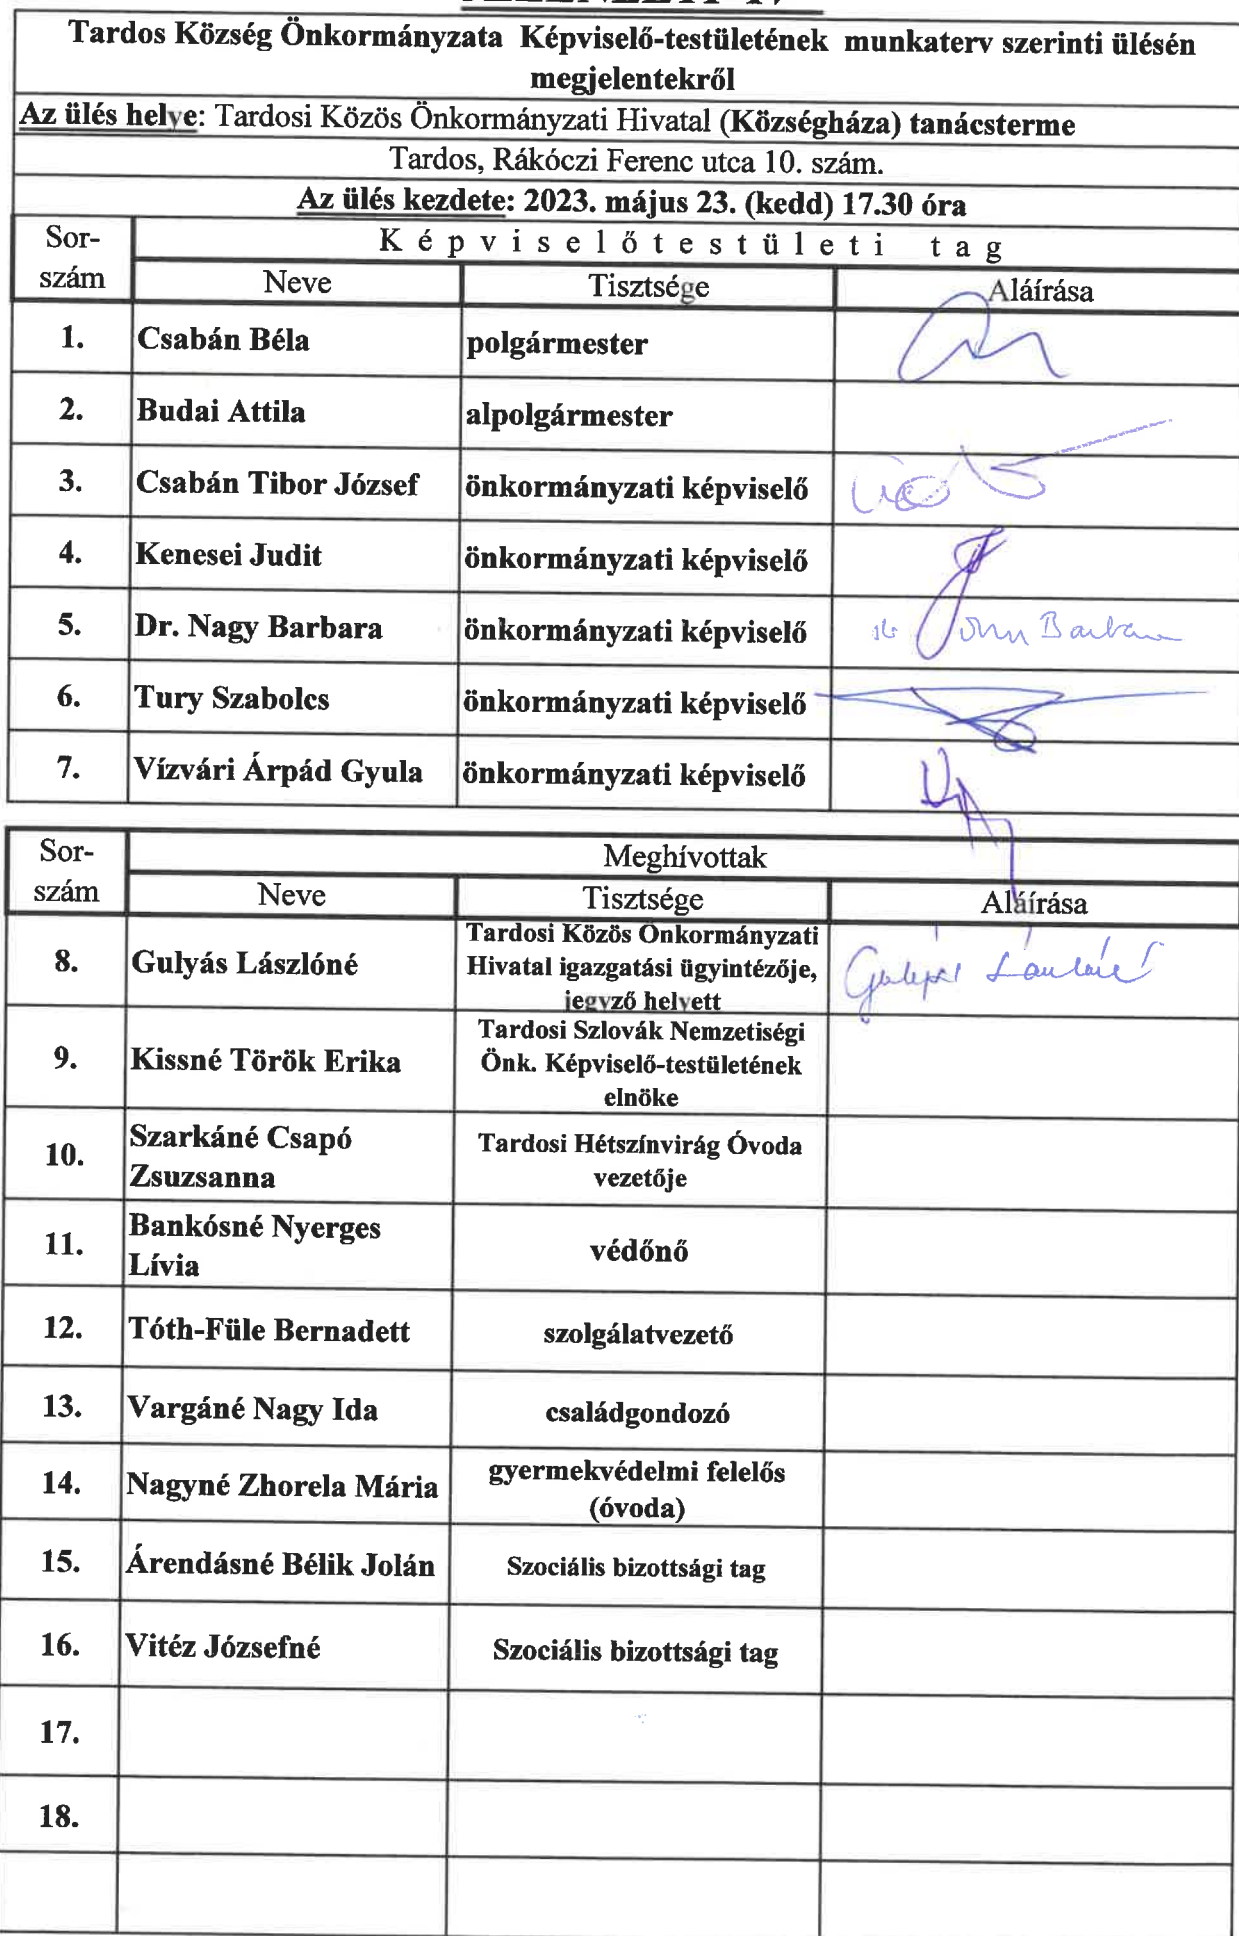 Tardos Község Önkormányzata Képviselő-testületének munkaterv szerinti ülésén
megjelentekről
Az ülés helye: Tardosi Közös Önkormányzati Hivatal (Községháza) tanácsterme
Tardos, Rákóczi Ferenc utca 10. szám.
Az ülés kezdete: 2023. május 23. (kedd) 17.30 óra
Sor-
szám
Képviselőtestületi tag
Neve Tisztsége Aláírása
1. Csabán Béla polgármester
2. Budai Attila alpolgármester
3. Csabán Tibor József önkormányzati képviselő
4. Kenesei Judit önkormányzati képviselő
5. Dr. Nagy Barbara önkormányzati képviselő
6. Tury Szabolcs önkormányzati képviselő
7. Vízvári Árpád Gyula önkormányzati képviselő
Sor-
szám
Meghívottak
Neve Tisztsége Aláírása
8. Gulyás Lászlóné
Tardosi Közös Önkormányzati
Hivatal igazgatási ügyintézője,
jegyző helyett
9. Kissné Török Erika
Tardosi Szlovák Nemzetiségi
Önk. Képviselő-testületének
elnöke
10. Szarkáné Csapó
Zsuzsanna
Tardosi Hétszínvirág Óvoda
vezetője
11. Bankósné Nyerges
Lívia
védőnő
12. Tóth-Füle Bernadett szolgálatvezető
13. Vargáné Nagy Ida családgondozó
14. Nagyné Zhorela Mária
gyermekvédelmi felelős
(óvoda)
15. Árendásné Bélik Jolán Szociális bizottsági tag
16. Vitéz Józsefné Szociális bizottsági tag
17.
18.